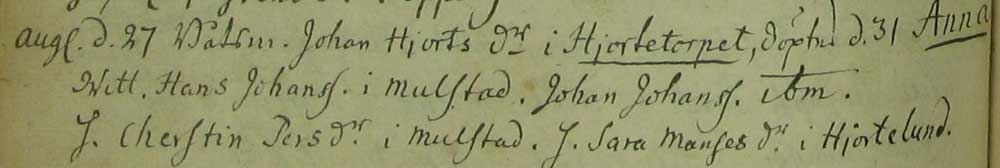 augl. d. 27 Båtsm. Johan Hjorts dr i Hjortetorpet, döptes d. 31 Anna
Witt. Hans Johanss. i mulstad. Johan Johanss. ibm.
J. Cherstin Persdr. i mulstad. J. Sara Månsesdr. i Hjortelund.